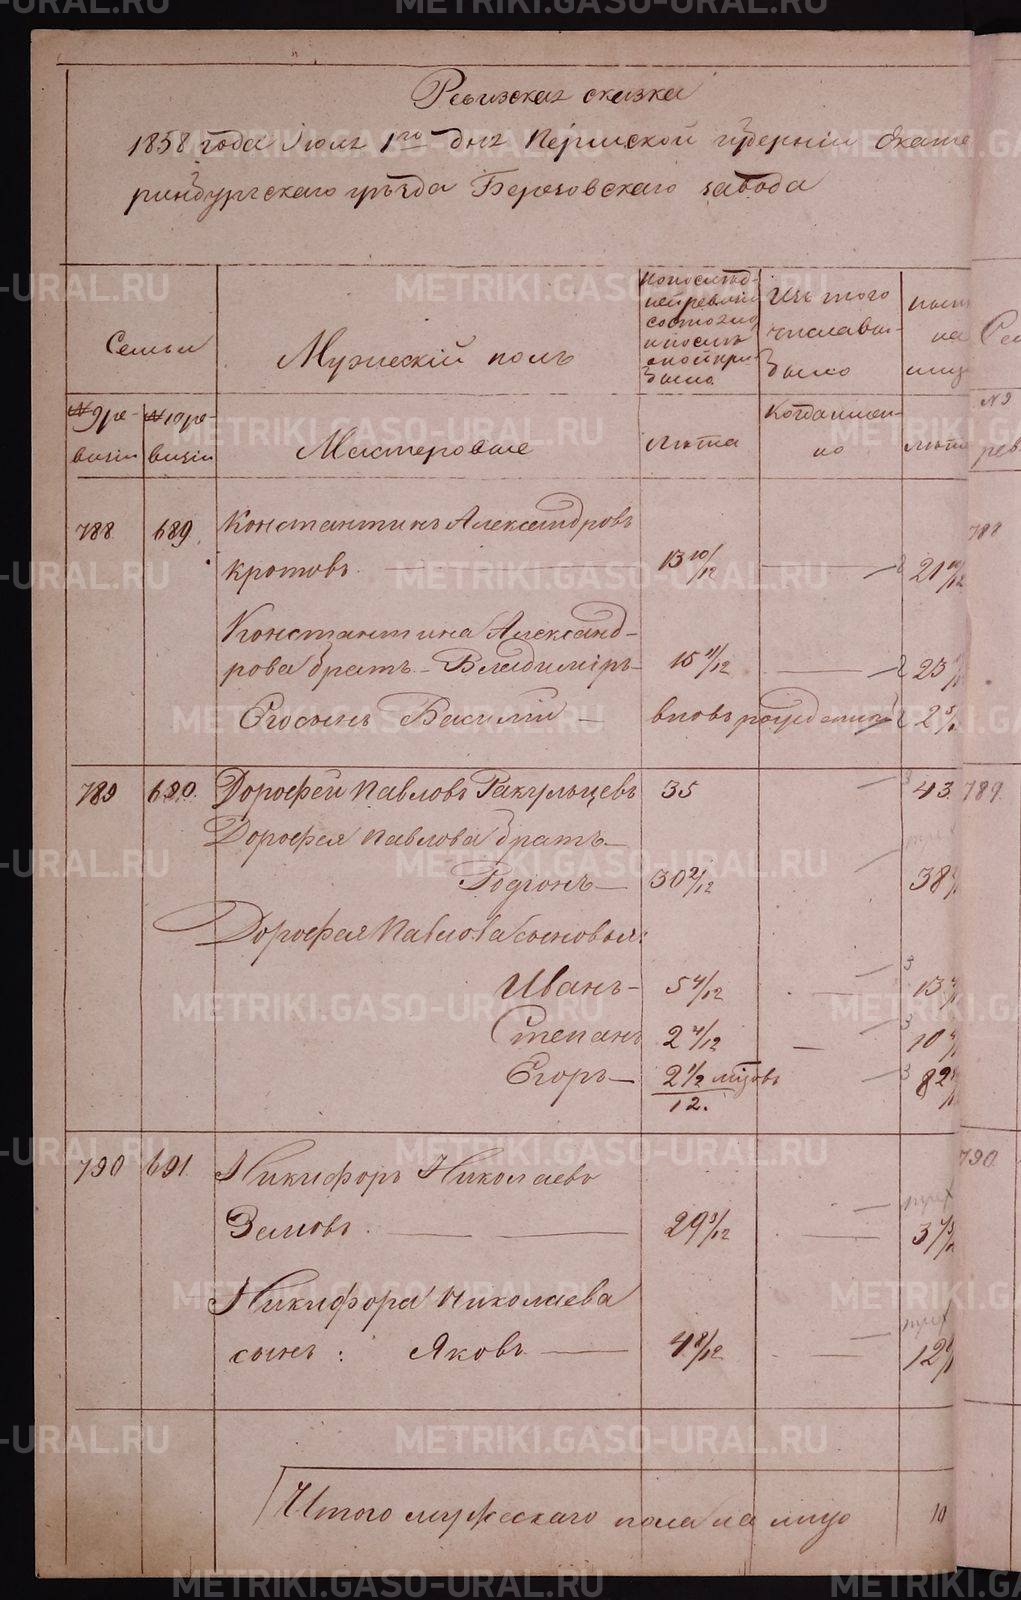 Ревизская сказка
1858 года Июля 1го дня Пермской губернии Екате
ринбургскаго уѣзда Березовскаго завода
Семьи
Мужескій полъ
По послѣд-
ней ревизіи
состояло
и послѣ
оной при-
было
Изъ того
числа вы-
было
№ 9 ре-
визіи
№ 10 ре-
визіи
Мастеровые
лѣта
Когда имен-
но
лѣта
788 689 Константинъ Александровъ
Кротовъ 13 10/12 21 10/12
Константина Александ-
рова братъ Владиміръ 15 11/12 23
Его сынъ Василій вновь рожденный 2
789 690 Дорофей Павловъ Ракульцевъ 35 43 789
Дорофея Павлова братъ
Родіонъ 30 2/12 38
Дорофея Павлова сыновья:
Иванъ 5 4/12 13
Степанъ 2 4/12 10
Егоръ 2 1/2 мѣсяцовъ 8
12.
790 691 Никифоръ Николаевъ 790
Земовъ 29 3/12 37
Никифора Николаева
сынъ: Яковъ 4 8/12 12
Итого мужескаго пола на лицо 10
METRIKI.GASO-URAL.RU